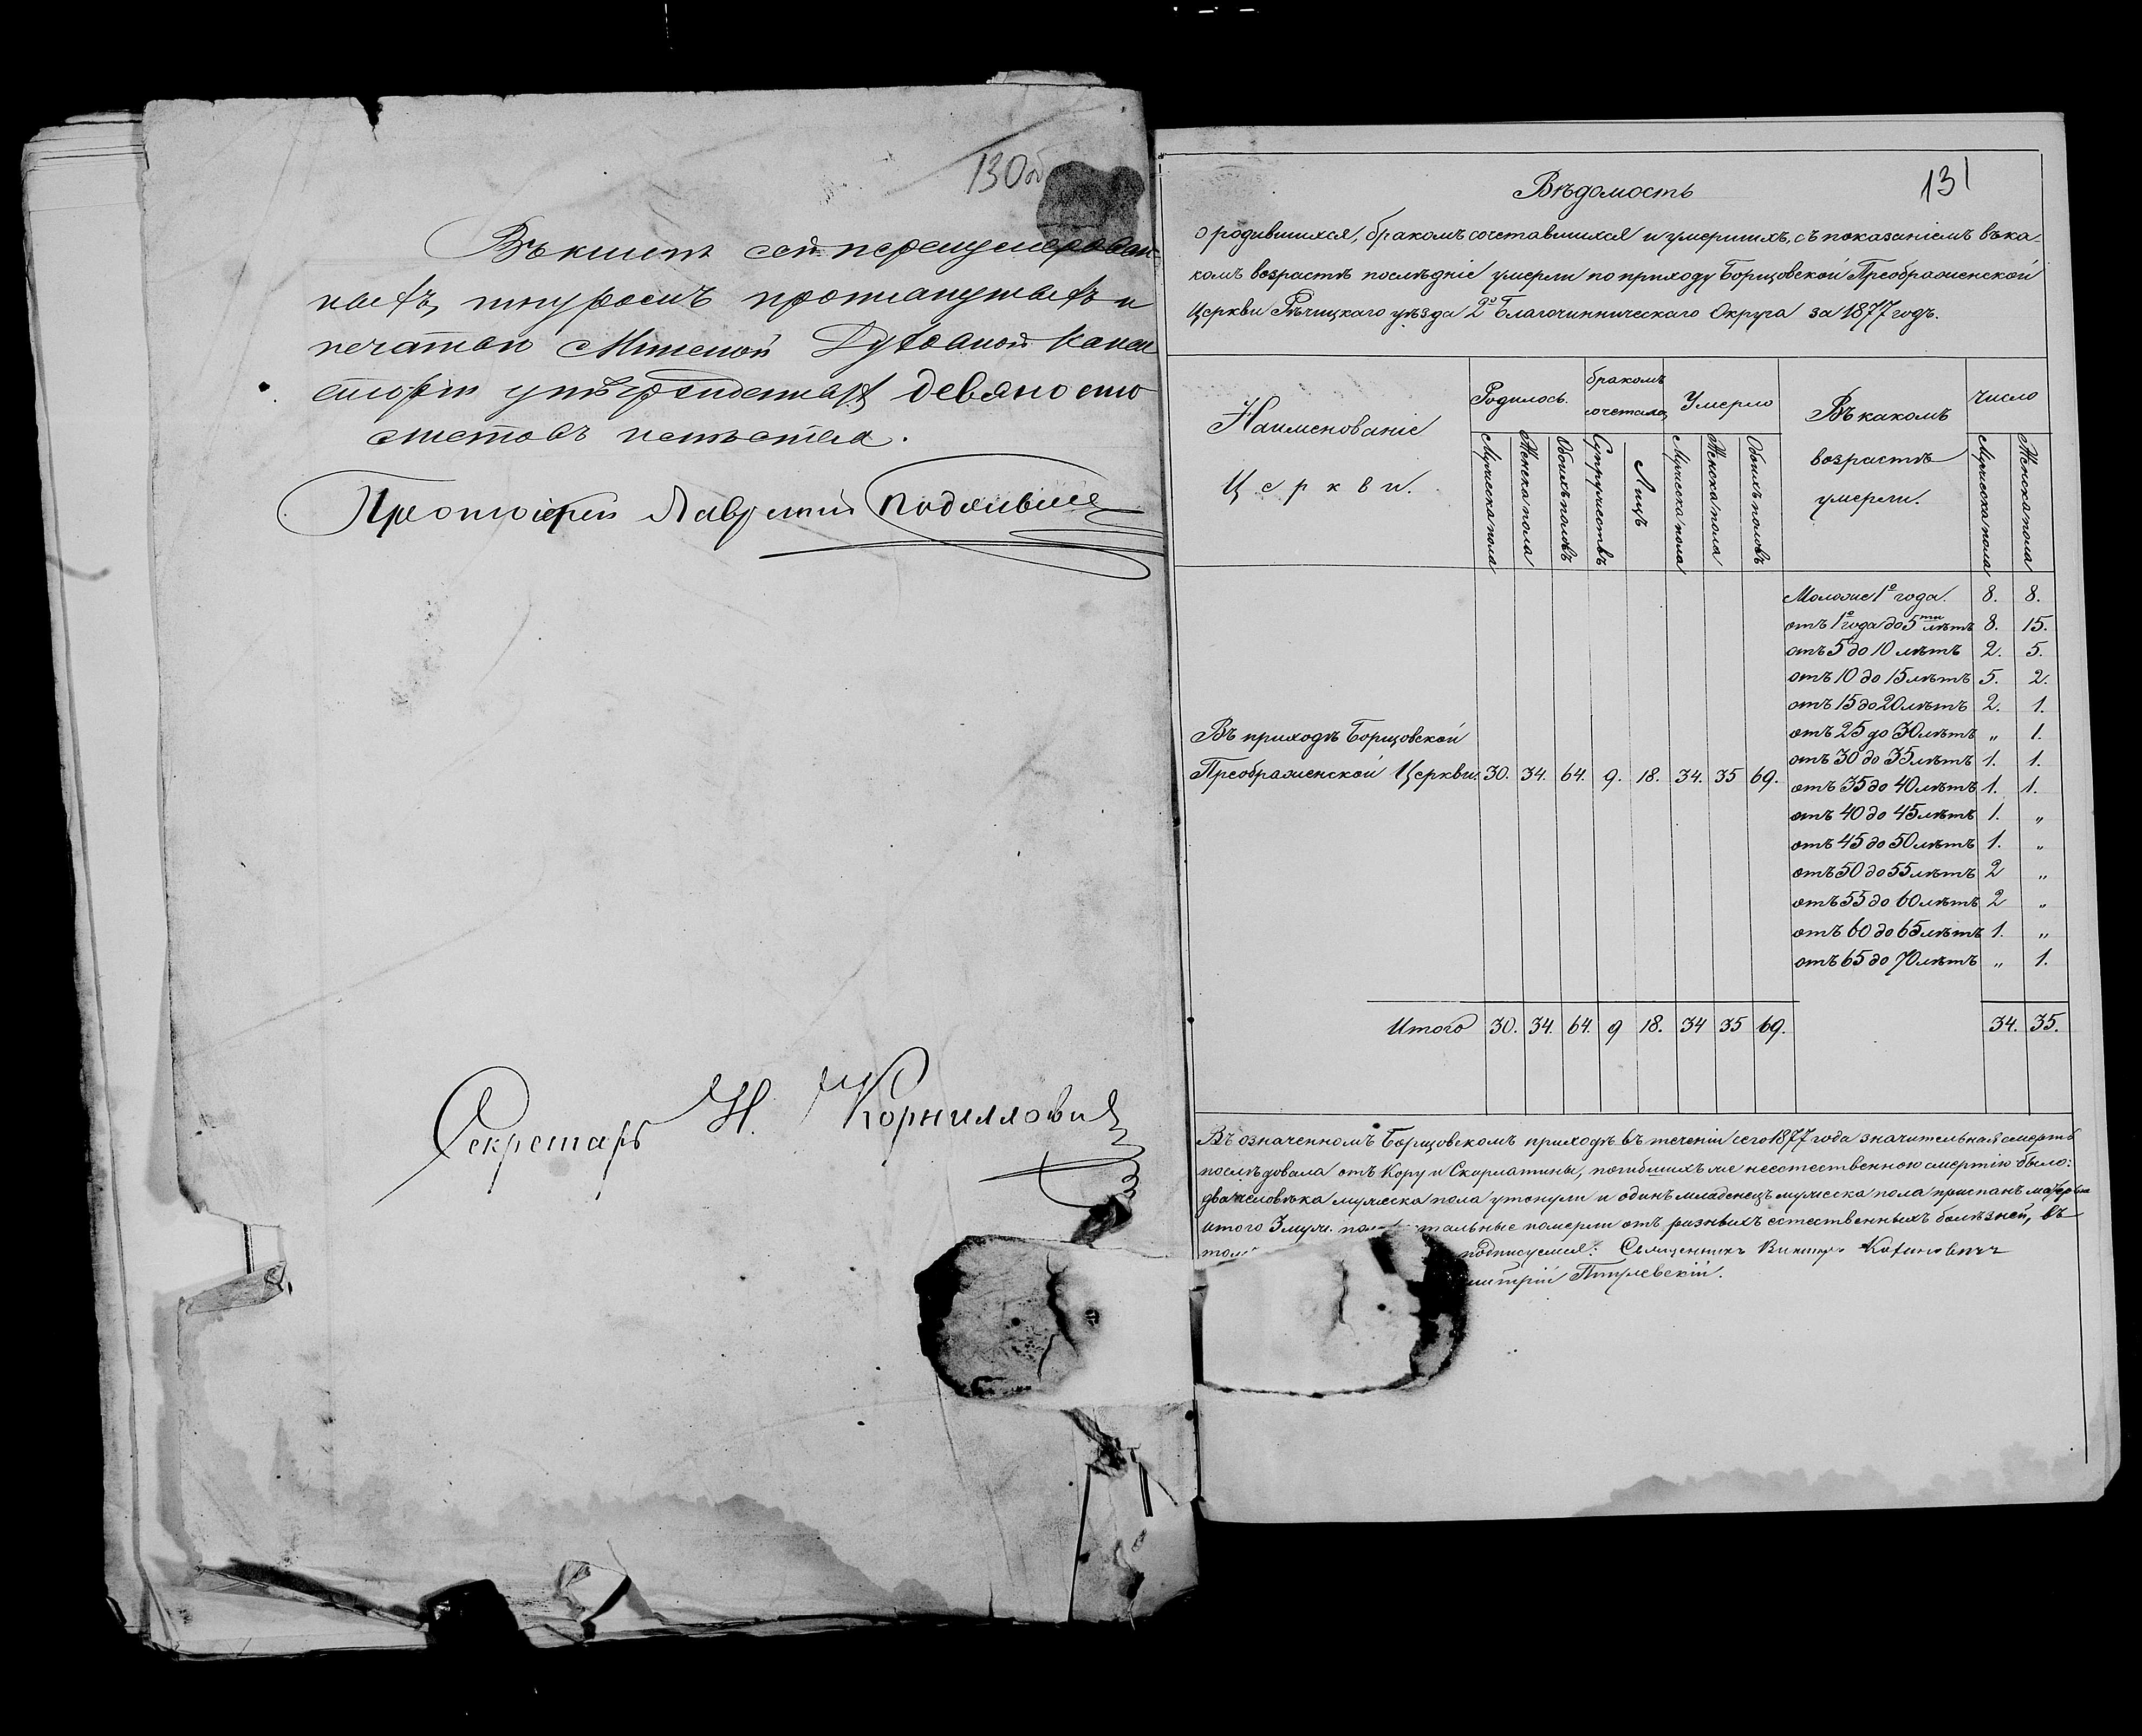 130об
Въ книгѣ сей перенумерован-
ныхъ, шнуромъ протянутыхъ и
печатью Минской Духовной Конси
сторіи утвержденныхъ девяносто
листовъ
Протоіерей Лаврентій
Секретарь Н. Корниллович
131
Вѣдомость
о родившихся, бракомъ сочетавшихся и умершихъ, съ показаніемъ въ ка-
комъ возрастѣ послѣдніе умерли по приходу Борщовской Преображенской
Церкви Рѣчицкаго уѣзда 2о Благочинническаго Округа за 1877 годъ.
Наименованіе Церкви.
Родилось.
Мужеска пола
Женска пола
Обоихъ половъ
бракомъ сочеталось
Супружествъ
Лицъ
Умерло
Мужеска пола
Женска пола
Обоихъ половъ
Въ какомъ возрастѣ умерли.
Число
Мужеска пола
Женска пола
Моложе 1о года. 8. 8.
отъ 1о года до 5ти лѣтъ 8. 15.
отъ 5 до 10 лѣтъ 2. 5.
отъ 10 до 15 лѣтъ 5. 2.
отъ 15 до 20 лѣтъ 2. 1.
отъ 25 до 30 лѣтъ „ 1.
отъ 30 до 35 лѣтъ 1. 1.
отъ 35 до 40 лѣтъ 1. 1.
отъ 40 до 45 лѣтъ 1. „
отъ 45 до 50 лѣтъ 1. „
отъ 50 до 55 лѣтъ 2 „
отъ 55 до 60 лѣтъ 2 „
отъ 60 до 65 лѣтъ 1. „
отъ 65 до 70 лѣтъ „ 1.
Въ приходѣ Борщовской
Преображенской Церкви. 30. 34. 64. 9. 18. 34. 35 69.
Итого 30. 34. 64. 9 18. 34 35 69. 34. 35.
Въ означенномъ Борщовскомъ приходѣ въ теченіи сего 1877 года значительная смерть
послѣдовала отъ Кору и Скарлатины, погибшихъ же неестественною смертію было:
два человѣка мужеска пола утонули и одинъ младенецъ мужеска пола приспанъ матерью
итого 3 муж. пола остальные померли отъ разныхъ естественныхъ болѣзней, въ
подписуемся: Священникъ Викторъ
митрій Птулевскій.